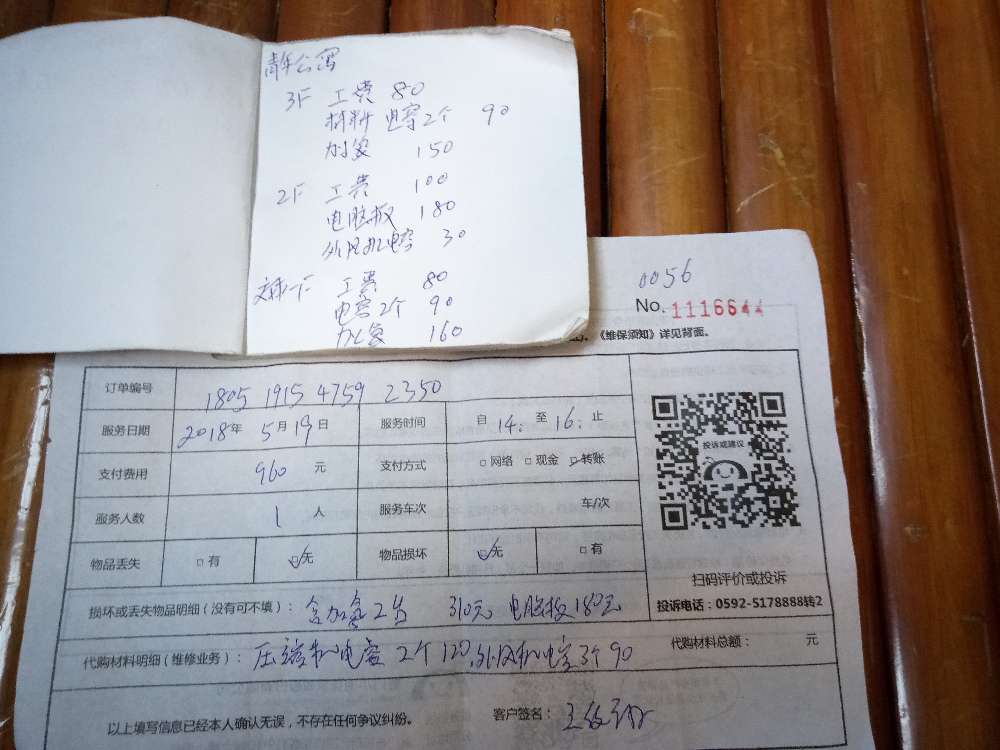 青年公寓
3F 工费 80
材料 电容2个 90
加氟 150
2F 工费 100
电脑板 180
外风机电容 30
一F 工费 80
电容2个 90
加氟 160
0056
No. 1116644
《维保须知》详见背面。
订单编号 1805 1915 4759 2350
服务日期 2018年 5月19日 服务时间 自 14: 至 16: 止
支付费用 960 元 支付方式 □网络 □现金 ☑转账
投诉或建议
服务人数 1 人 服务车次 车/次
物品丢失 □有 ☑无 物品损坏 ☑无 □有
扫码评价或投诉
损坏或丢失物品明细（没有可不填）： 含加氟2台 310元 电脑板180元
投诉电话：0592-5178888转2
代购材料明细（维修业务）： 压缩机电容 2个 120,外风机电容3个 90 代购材料总额： 元
以上填写信息已经本人确认无误，不存在任何争议纠纷。 客户签名：